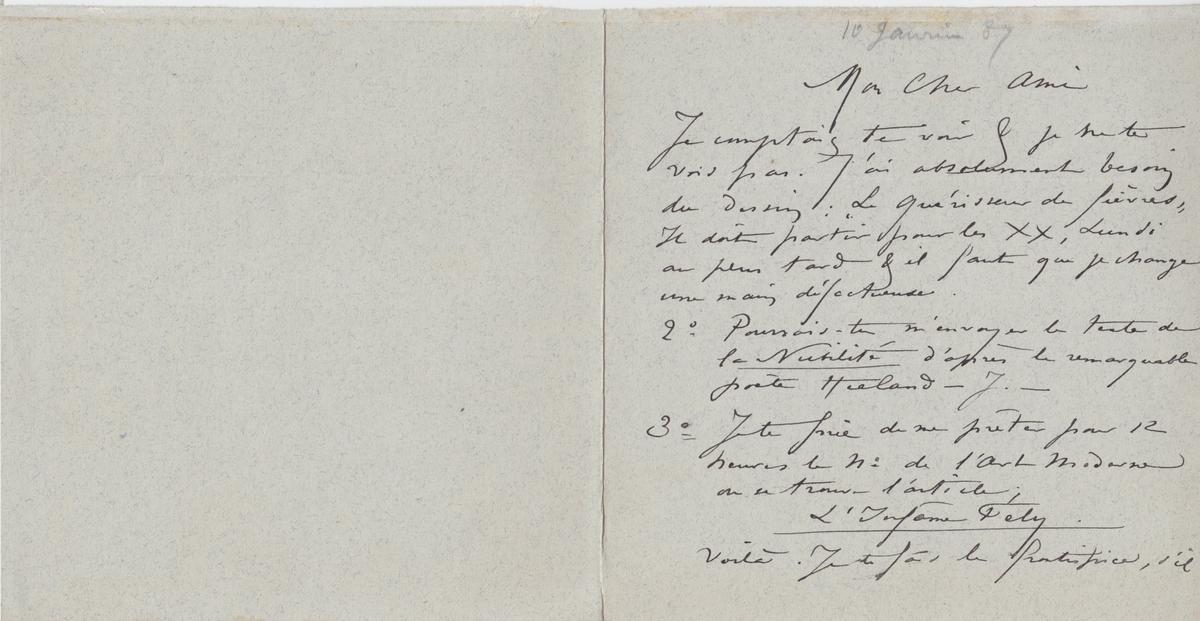 10 Janvier 87
Mon Cher Ami
Je comptais te voir & je ne te
vois pas. J'ai absolument besoin
du Dessin : Le Guérisseur de fièvres,
Il doit partir pour les XX, Lundi
au plus tard & il faut que je change
une main défectueuse.
2º Pourrais-tu m'envoyer le texte de
la Nubilité d'après le remarquable
poète – J. –
3º Je te prie de me prêter pour 12
heures le Nº de l'Art Moderne
ou se trouve l'article ;
L'Infâme Fély.
Voilà. Je te fais le frontispice, s'il